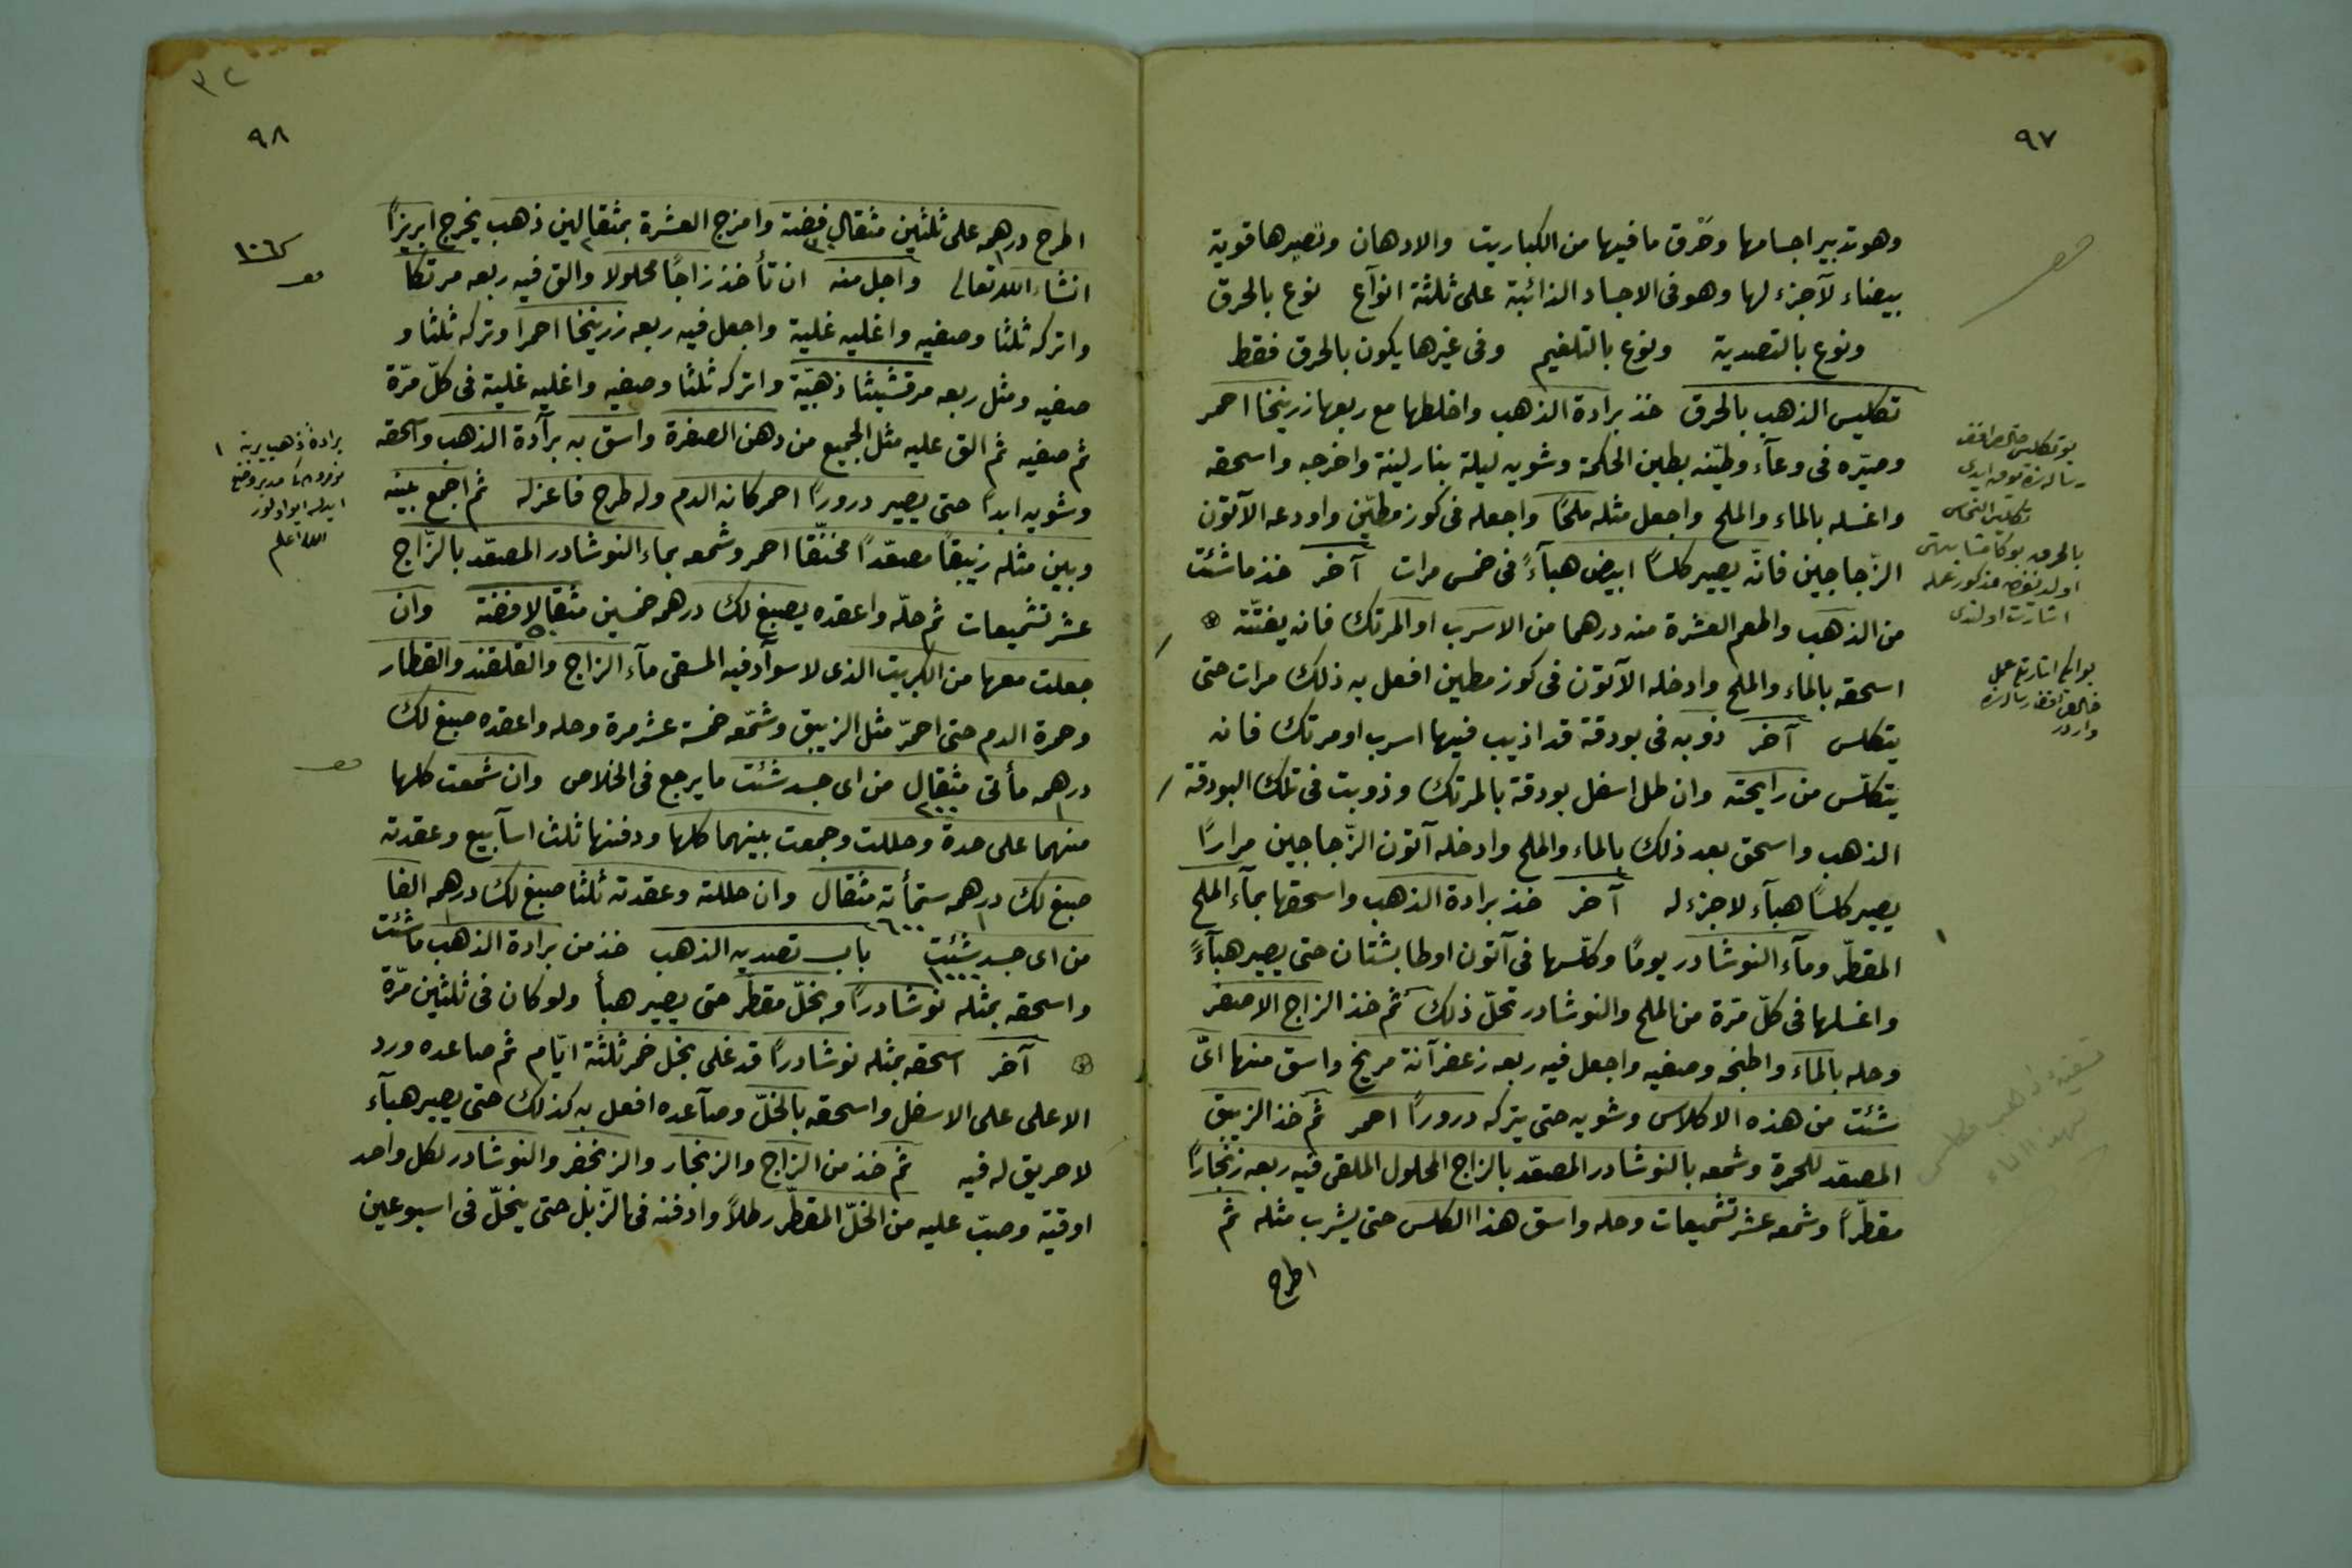 ٩٧
وهو تدبير اجسامها وحَرق ما فيها من الكباريت والادهان وتصيرها قوية
بيضاء لآجزء لها وهو فى الاجساد الذائبة على ثلثة انوآع نوع بالحرق
ونوع بالتصدية ونوع بالتلغيم وفى غيرها يكون بالحرق فقط
تكليس الذهب بالحرق خذ برادة الذهب واخلطها مع ربعها زرنيخا احمر
وصيّره فى وعآء وطيّنه بطين الحكمة وشويه ليلة بنار لينة واخرجه واسحقه
واغسله بالماء والملح واجعل مثله ملحًا واجعله فى كوز مطيّن واودعه الآتون
الزّجاجين فانّه يصير كلسًا ابيض هبآءً فى خمس مرات آخر خذ ما شئت
من الذهب واطعم العشرة منه درهما من الاسرب او المرتك فانه يفتّته
اسحقه بالماء والملح وادخله الآتون فى كوز مطين افعل به ذلك مرات حتى
يتكلس آخر ذوبه فى بودقة قد اذيب فيها اسرب او مرتك فانه
يتكلّس من رايحته وان طل اسفل بودقة بالمرتك وذوبت فى تلك البودقة
الذهب واسحق بعد ذلك بالماء والملح وادخله آتون الزّجاجين مرارًا
يصير كلسًا هبآء لاجزء له آخر خذ برادة الذهب واسحقها بمآء الملح
المقطّر ومآء النوشادر يومًا وكلّسها فى آتون اوطابشتان حتى يصير هبآءً
واغسلها فى كلّ مَرّة من الملح والنوشادر تحلّ ذلك ثم خذ الزاج الاصفر
وحله بالماء واطبخه وصفيه واجعل فيه ربعه زعفرآنة مريخ واسق منها اىّ
شئت من هذه الاكلاس وشويه حتى يتركه درورًا احمر ثم خذ الزيبق
المصعّد للحمرة وشمعه بالنوشادر المصعّد بالزاج المحلول الملقى فيه ربعه زنجارًا
مقطّرًا وشمعه عشر تشميعات وحله واسق هذا الكلس حتى يشرب مثله ثم
اطرح
تكليس النحاس
اشارت اولندى
٩٨
١٠٦
اطرح درهمه على ثلثين مثقال فضة وامزج العشرة بمثقالين ذهب يخرج ابريزًا
انشاء الله تعالى واجل منه ان تأخذ زاجًا محلولا والق فيه ربعه مرتكا
واتركه ثلثا وصفيه واغليه غلية واجعل فيه ربعه زرنيخا احمرا وتركه ثلثا و
صفيه ومثل ربعه مرقشيثا ذهبيّة واتركه ثلثا وصفيه واغليه غلية فى كلّ مرّة
ثم صفيه ثم الق عليه مثل الجميع من دهن الصفرة واسق به برآدة الذهب واسحقه
وشويه ابدًا حتى يصير درورًا احمر كانه الدم وله طرح فاعزله ثم اجمع بينه
وبين مثله زيبقاً مصعّدًا مخنّقا احمر وشمعه بماء النوشادر المصعّد بالزّاج
عشر تشميعات ثم حلّه واعقده يصبغ لك درهمه خمسين مثقالا فضة وان
جعلت معها من الكبريت الذى لا سوآد فيه المسقى مآء الزاج والقلقند والقطار
وحمرة الدم حتى احمرّ مثل الزيبق وشمّعه خمسة عشر مرة وحله واعقده صبغ لك
درهمه مأتى مثقال من اى جسد شئت ما يرجع فى الخلاص وان شمعت كلها
منهما على حدة وحللت وجمعت بينهما كلها ودفنها ثلث اسآبيع وعقدته
صبغ لك درهمه ستمأته مثقال وان حللته وعقدته ثلثا صبغ لك درهمه الفا
من اى جسد شئت باب تصديه الذهب خذ من برادة الذهب ما شئت
واسحقه بمثله نوشادرًا وبخلّ مقطّر حتى يصير هبأ ولو كان فى ثلثين مرّة
آخر اسحقه بمثله نوشادرًا قد غلى بخل خمر ثلثة ايّام ثم صاعده ورد
الاعلى على الاسفل واسحقه بالخلّ وصآعده افعل به كذلك حتى يصير هبآء
لاحريق له فيه ثم خذ من الزاج والزنجار والزنجفر والنوشادر لكل واحد
اوقية وصبّ عليه من الخلّ المقطّر رطلاً وادفنه فى الزّبل حتى ينحلّ فى اسبوعين
الله اعلم